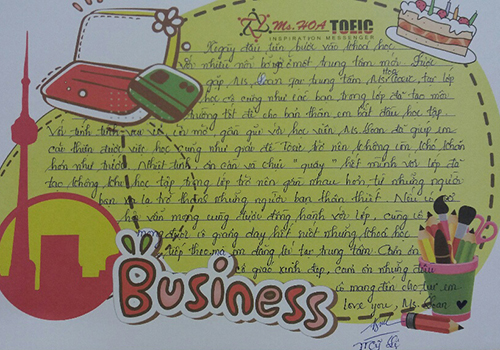 Ms. HOA TOEIC
INSPIRATION MESSENGER
Ngày đầu tiên bước vào khoá học
với nhiều nỗi bỡ ngỡ ở một trung tâm mới. Được
gặp Ms. Loan tại trung tâm Ms Hoa Toeic, tại lớp
học và cũng như các bạn trong lớp đã tạo môi
trường tốt để cho bản thân em bắt đầu học tập.
Với tính tình vui vẻ, cởi mở, gần gũi với học viên, Ms. Loan đã giúp em
cải thiện được việc học cũng như giải đề Toeic trở nên không còn khó khăn
hơn như trước. Nhiệt tình, ân cần và chịu "quẩy" hết mình với lớp đã
tạo không khí học tập trong lớp trở nên gần nhau hơn, từ những người
bạn xa lạ trở thành những người bạn thân thiết. Nếu có cơ hội
em vẫn mong cũng được đồng hành với lớp, cũng có
mong được cô giảng dạy hết suốt những khoá học
tiếp theo mà em đăng kí tại trung tâm. Cám ơn
cô giáo xinh đẹp, cám ơn những điều
cô mang đến cho tụi em
love you, Ms. Loan
BUSINESS